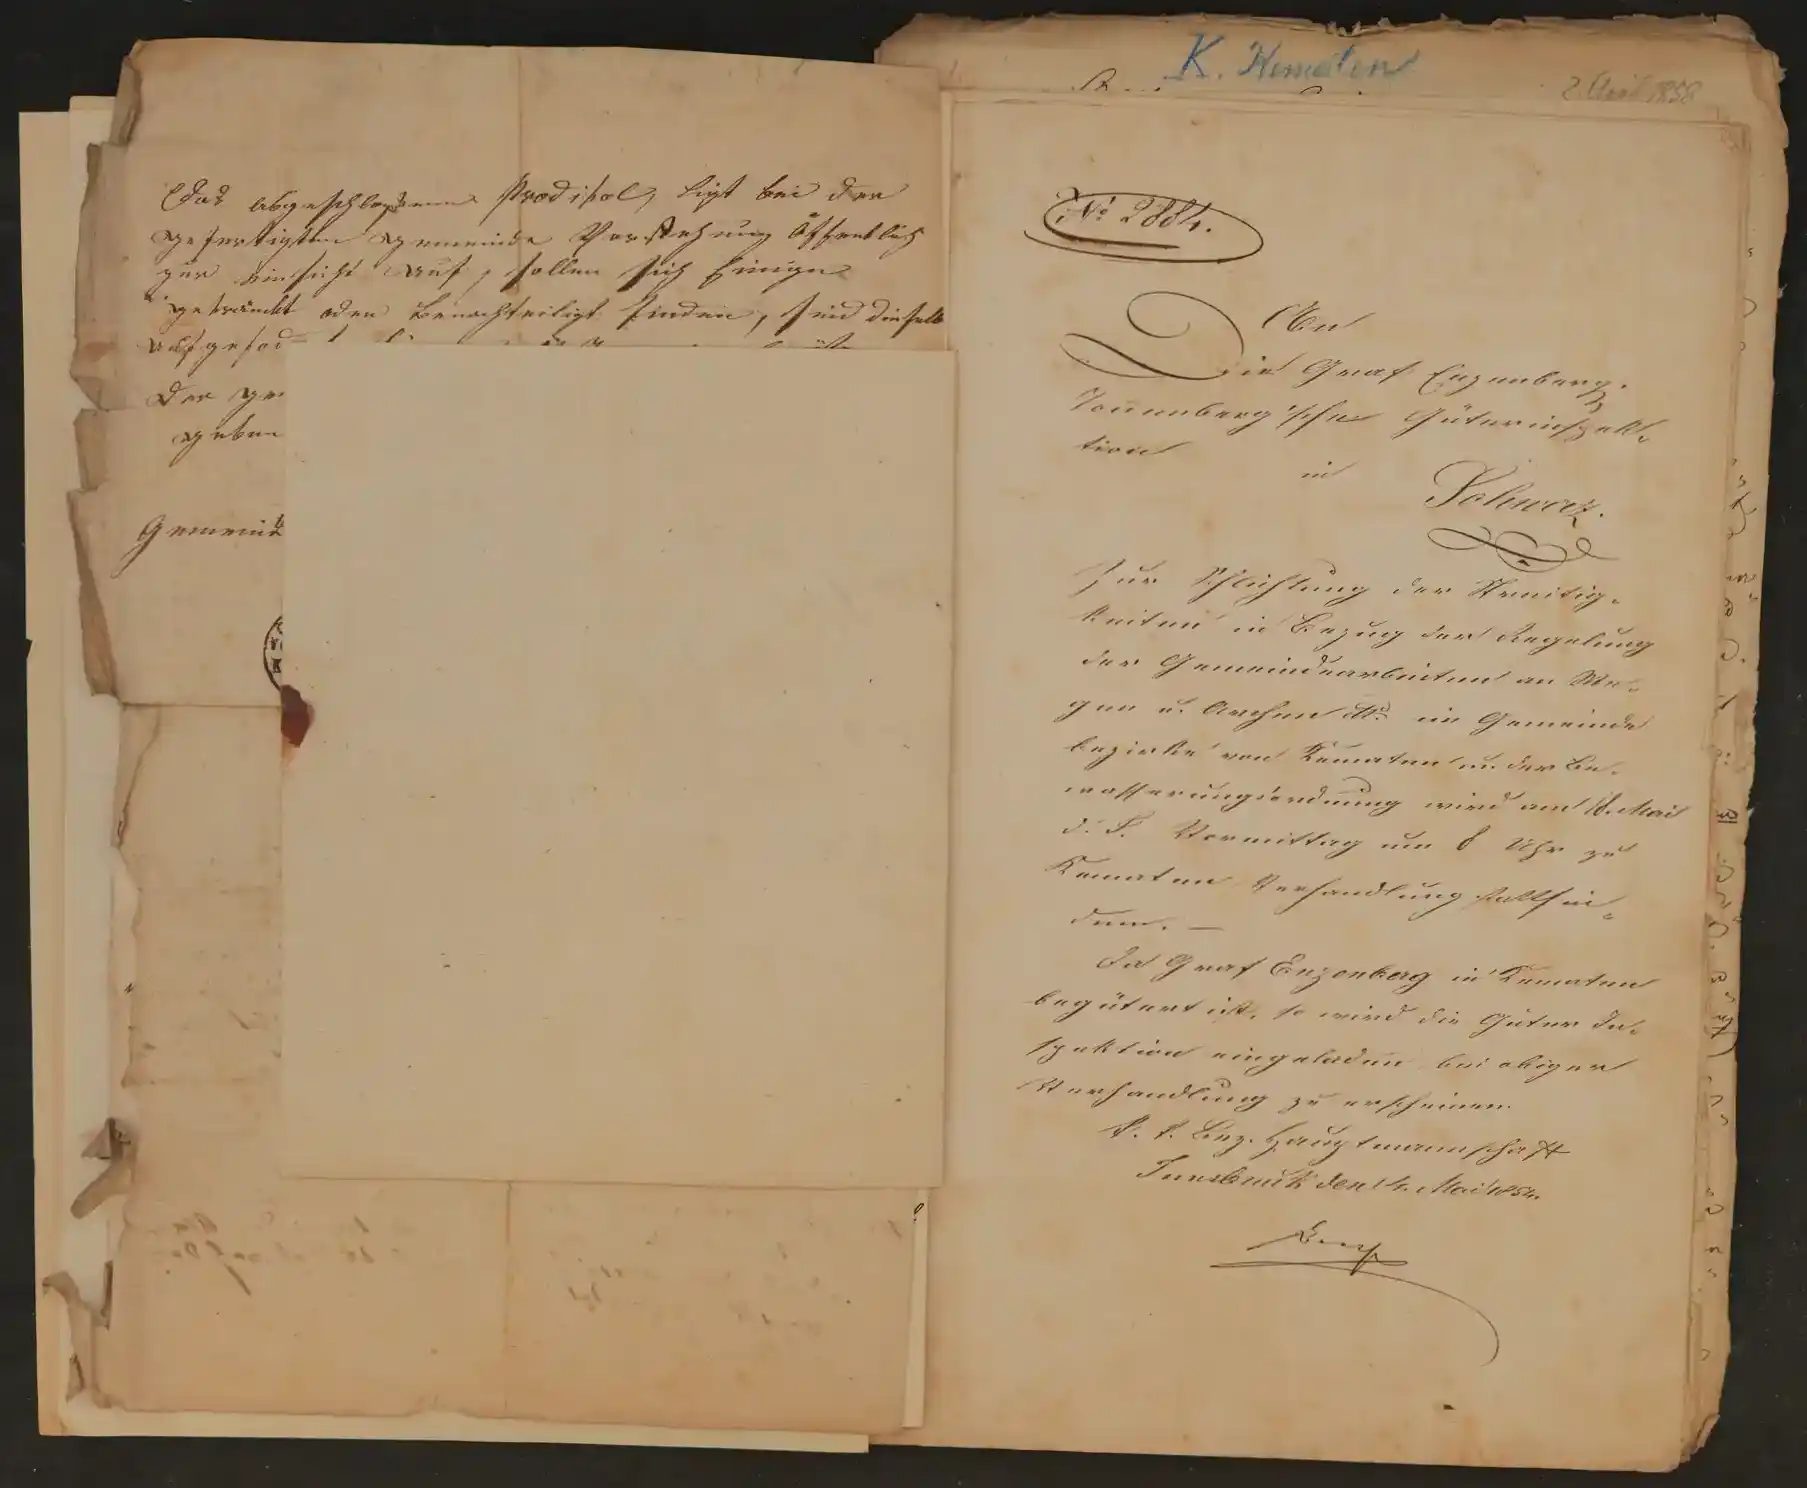 Das abgeschlossene Prodikol, ligt bei der
gefertigten gemeinde Vorstehung Öffentlich
zur einsicht auf, sollen sich Einige
gekränckt oder Benachteiligt finden, sind dieselb
aufgefod
Der ge
geben
Gemeind
K. Kematen
2 April 1858
No 2884.
An
Die Graf Enzenberg.
Tannenberg'sche Güterinspek-
tion
in
Schwaz.
Zur Schlichtung der Streitig-
keiten in Bezug der Regelung
der Gemeindearbeiten an We-
gen u. Archen etc. im Gemeinde
bezirke von Kematen u. der Be-
wasserungsordnung wird am 18. Mai
d. J. Vormittag um 8 Uhr zu
Kematen Verhandlung stattfin-
den. —
Da Graf Enzenberg in Kematen
begütert ist, so wird die Güter In-
spektion eingeladen bei obiger
Verhandlung zu erscheinen.
K. k. Bez. Hauptmannschaft
Innsbruck den 14. Mai 1854.